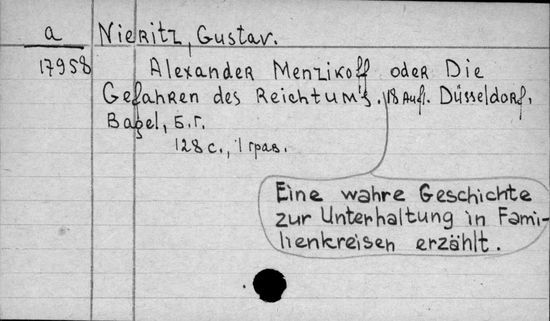 a Nieritz, Gustav.
17958 Alexander Menzikoff oder Die
Gefahren des Reichtum's. 18 Aufl. Düsseldorf,
Bagel, Б.г.
128 с., 1 грав.
Eine wahre Geschichte
zur Unterhaltung in Fami-
lienkreisen erzählt.